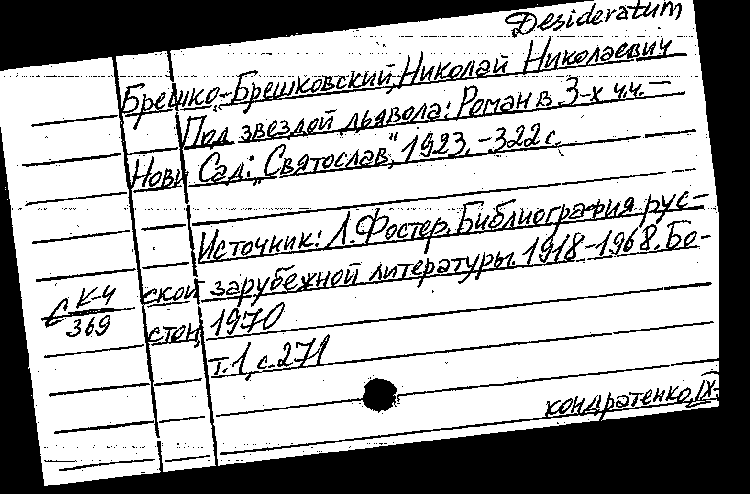 Desideratum
Брешко-Брешковский, Николай Николаевич
Под звездой дьявола: Роман в 3-х ч.ч. —
Нови Сад: „Святослав“, 1923. - 322 с.
Источник: Л. Фостер. Библиография рус-
ской зарубежной литературы. 1918-1968. Бо-
стон, 1970
т. 1, с. 271
с К-4
369
Кондратенко, IX-